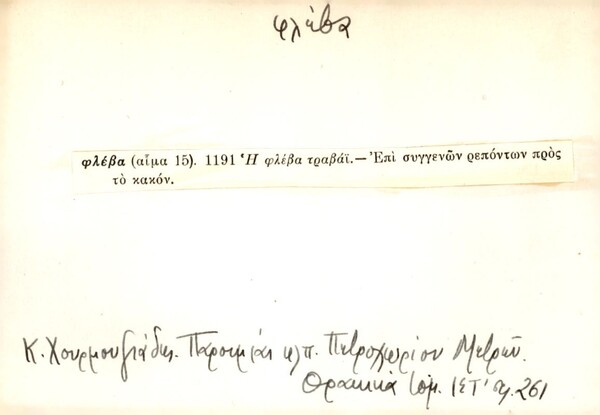 φλέβα
φλέβα (αἷμα 15). 1191 Ἡ φλέβα τραβάϊ.—Ἐπὶ συγγενῶν ρεπόντων πρὸς
τὸ κακόν.
Κ. Χουρμουζιάδης. Παροιμίαι κλπ. Πετροχωρίου Μετρῶν.
Θρακικὰ τόμ. ΙΣΤ' σ. 261